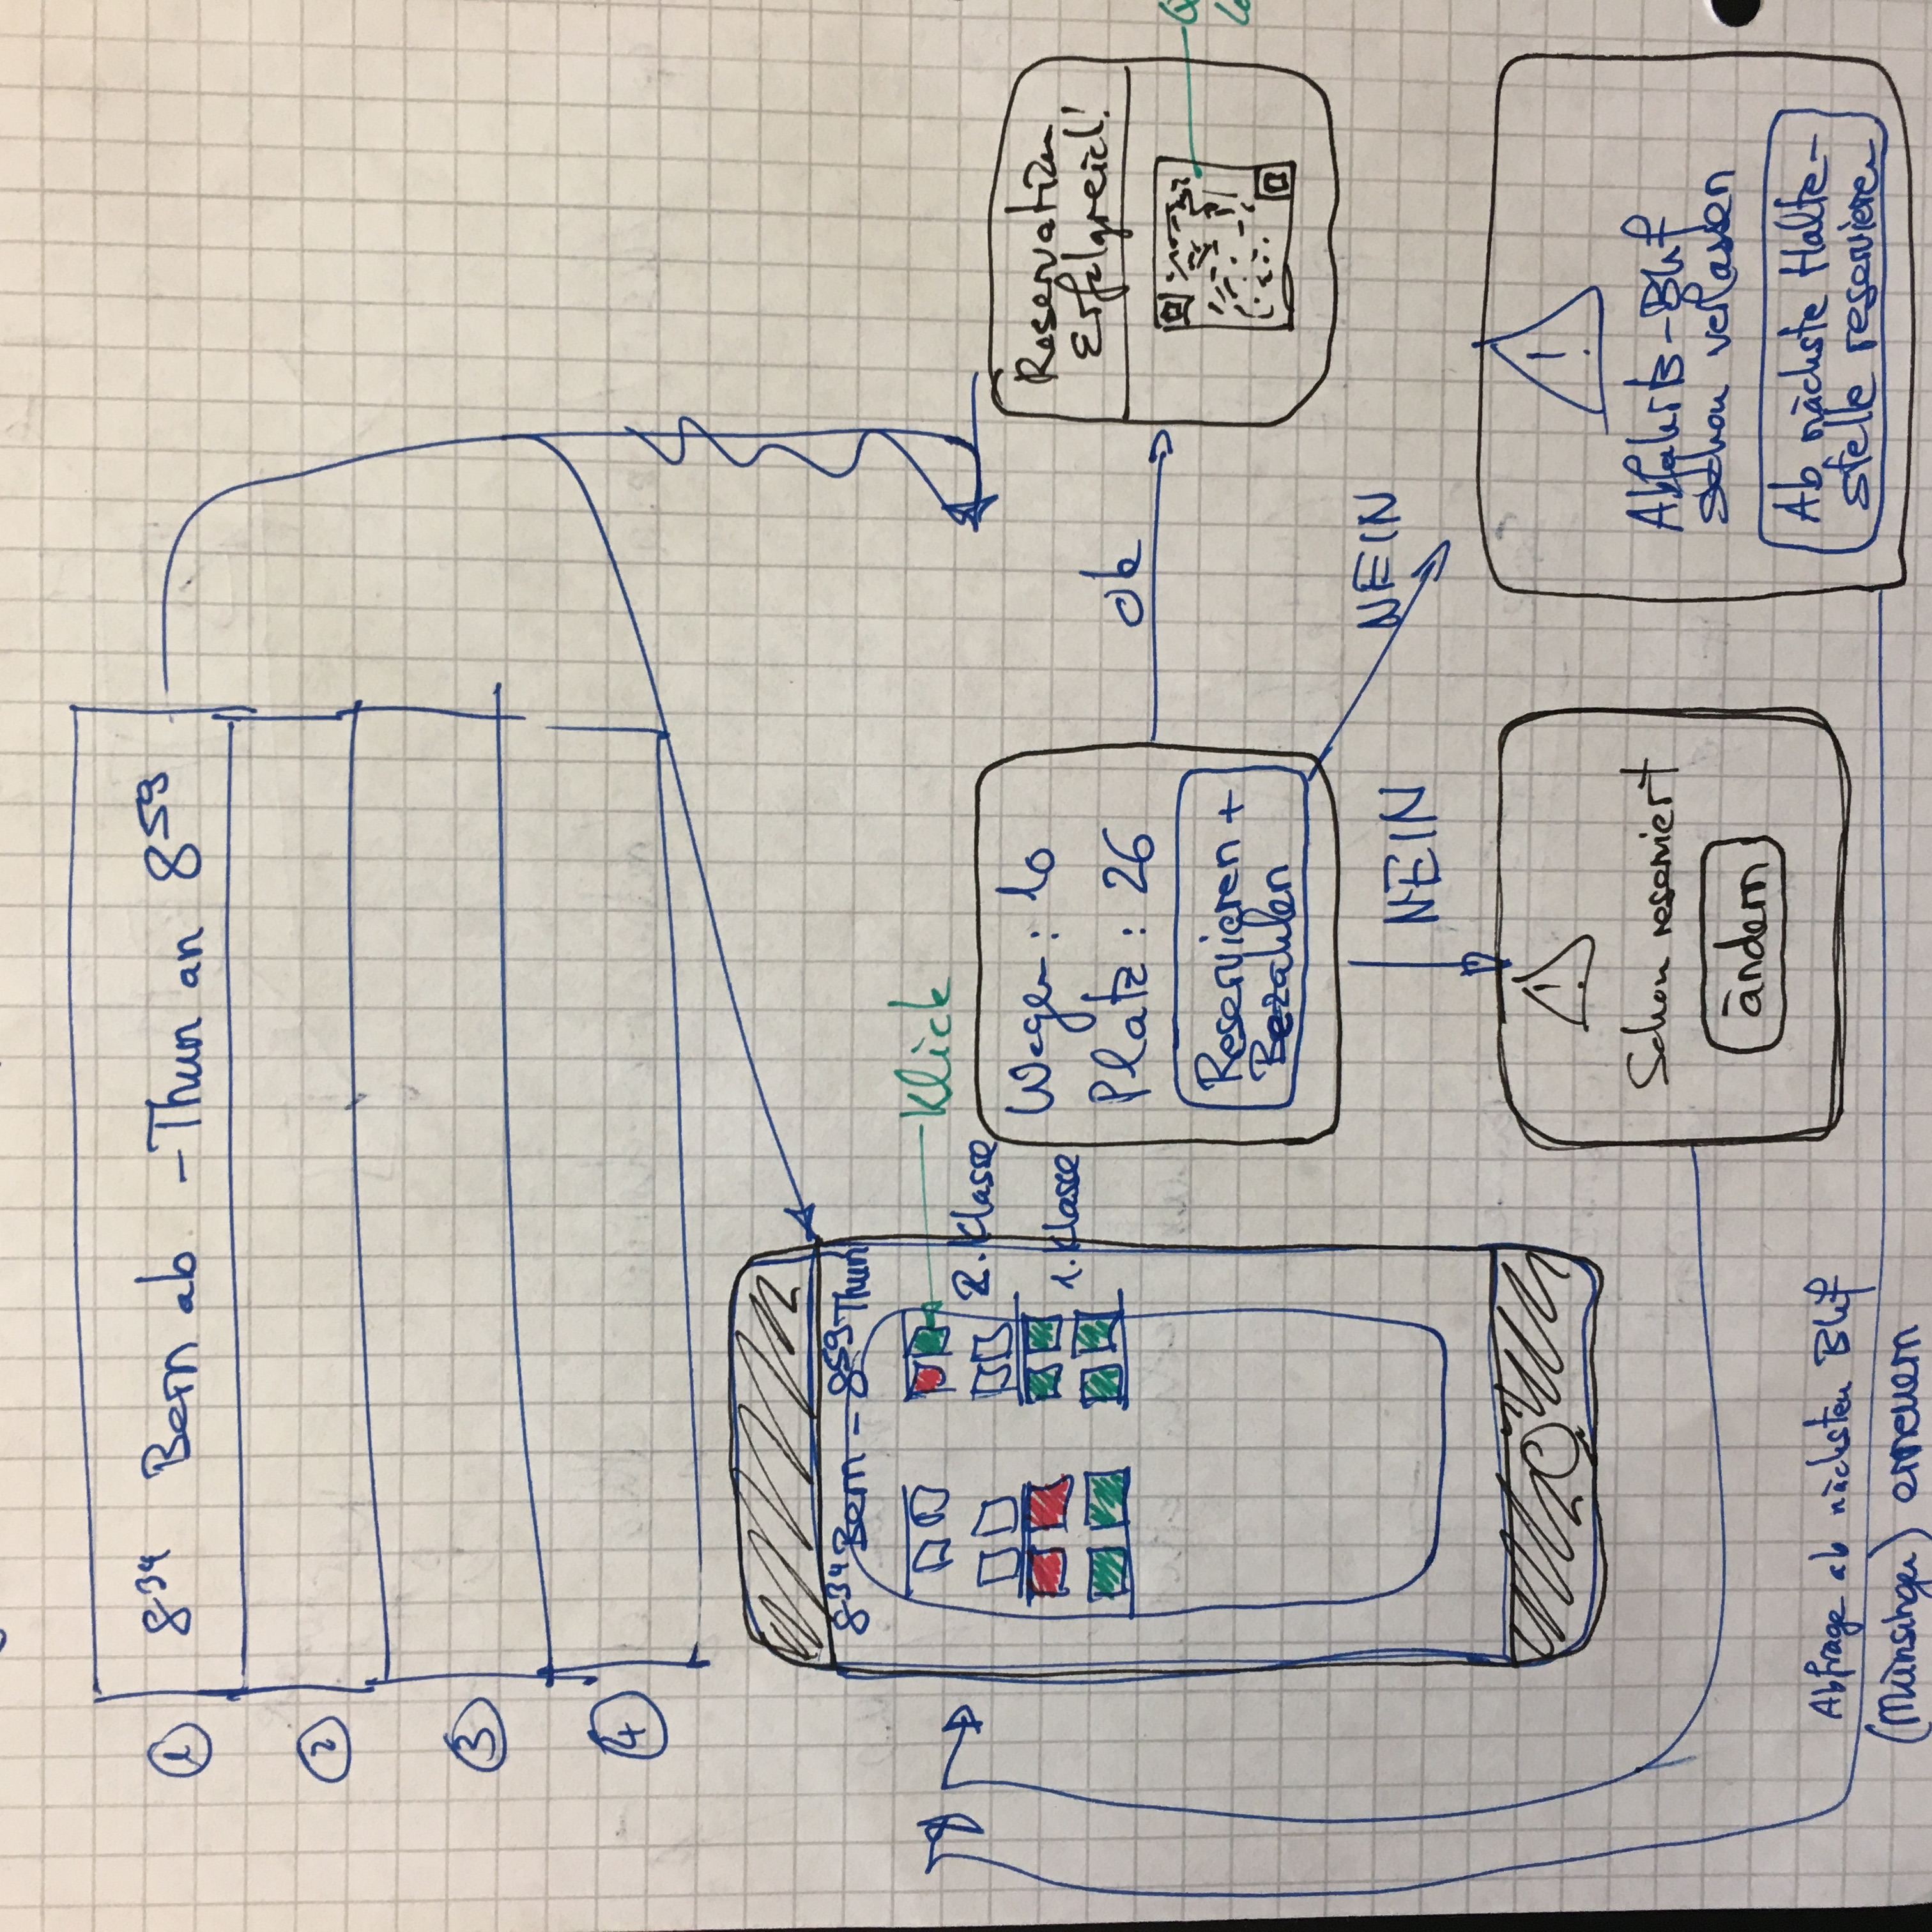 1 8³⁴ Bern ab – Thun an 8⁵⁹
2
3
4
8³⁴ Bern – 8⁵⁹ Thun
Klick
2. Klasse
1. Klasse
Wagen: 10
Platz: 26
Reservieren +
Bezahlen
ok
Reservation
Erfolgreich!
NEIN
NEIN
!
Schon reserviert
ändern
!
Abfahrts-Bhf
schon verlassen
Ab nächste Halte-
stelle reservieren
Abfrage ab nächsten Bhf
(Münsingen) erneuern